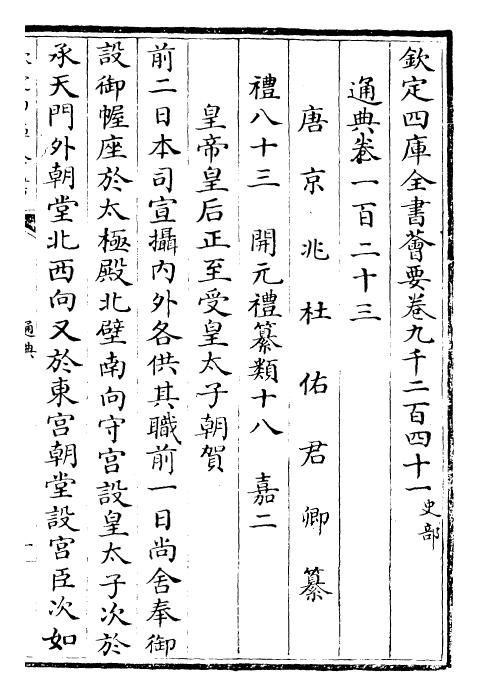 欽定四庫全書薈要卷九千二百四十一 史部
通典卷一百二十三
唐京兆杜佑君卿纂
禮八十三 開元禮纂類十八 嘉二
皇帝皇后正至受皇太子朝賀
前二日本司宣攝內外各供其職前一日尚舍奉御
設御幄座於太極殿北壁南向守宮設皇太子次於
承天門外朝堂北西向又於東宮朝堂設宮臣次如
通典
一